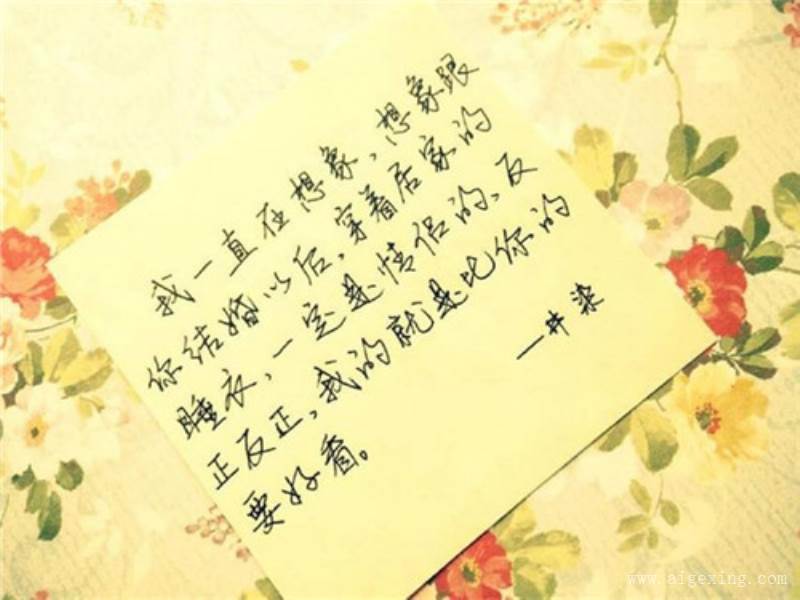 我一直在想象，想象跟
你结婚以后，穿着居家的
睡衣，一定是情侣的，反
正反正，我的就是比你的
要好看。
一井染
www.aigexing.com